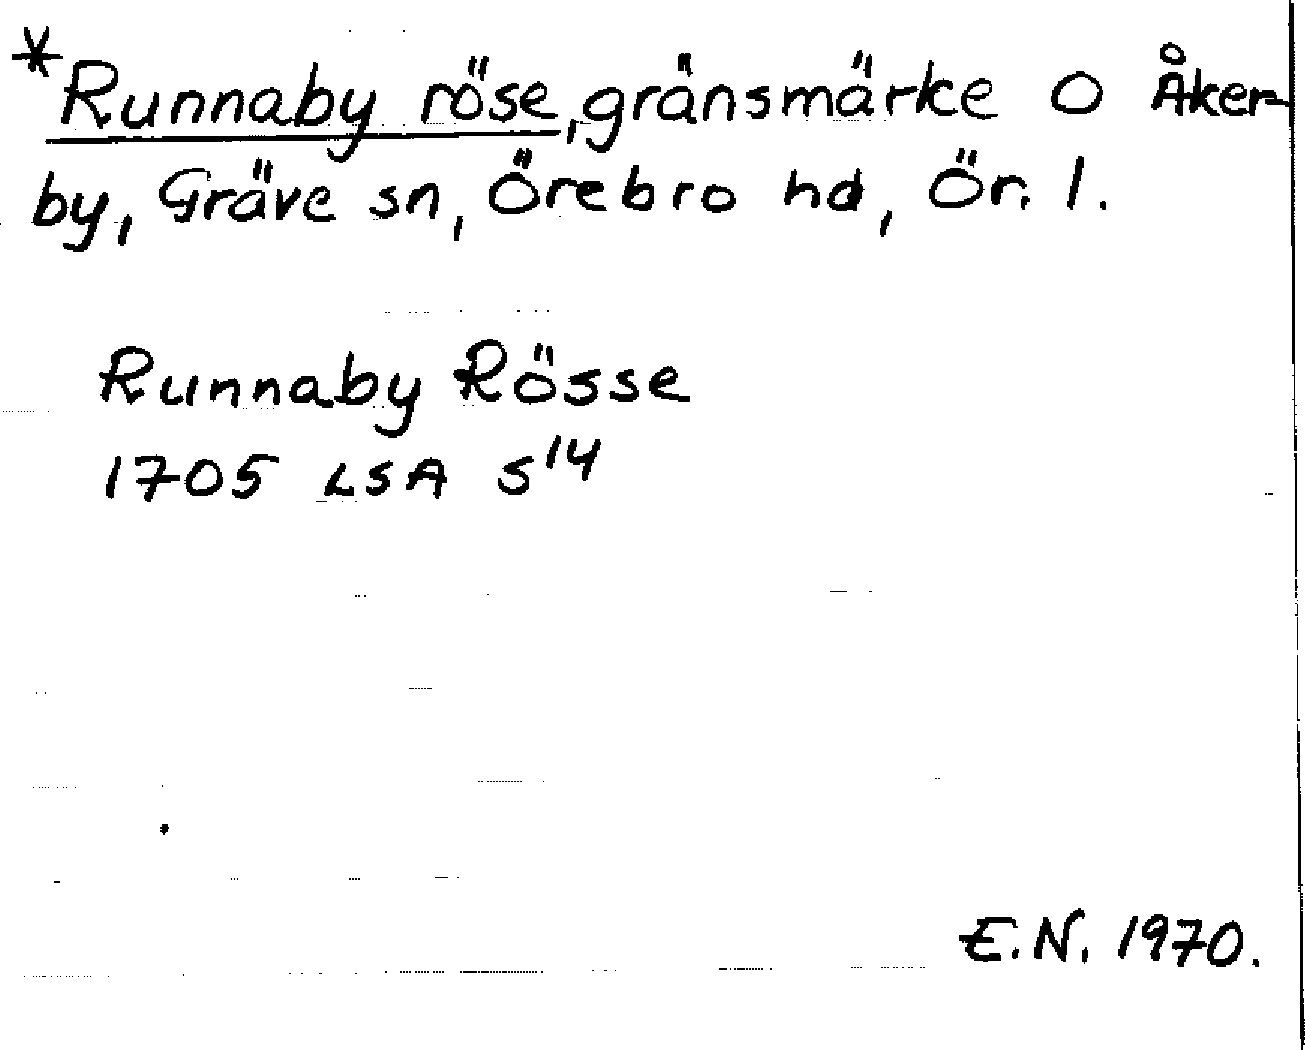 *Runnaby röse, gränsmärke O Åker-
by, Gräve sn, Örebro hd, Ör. l.
Runnaby Rösse
1705 LSA S¹⁴
E.N. 1970.